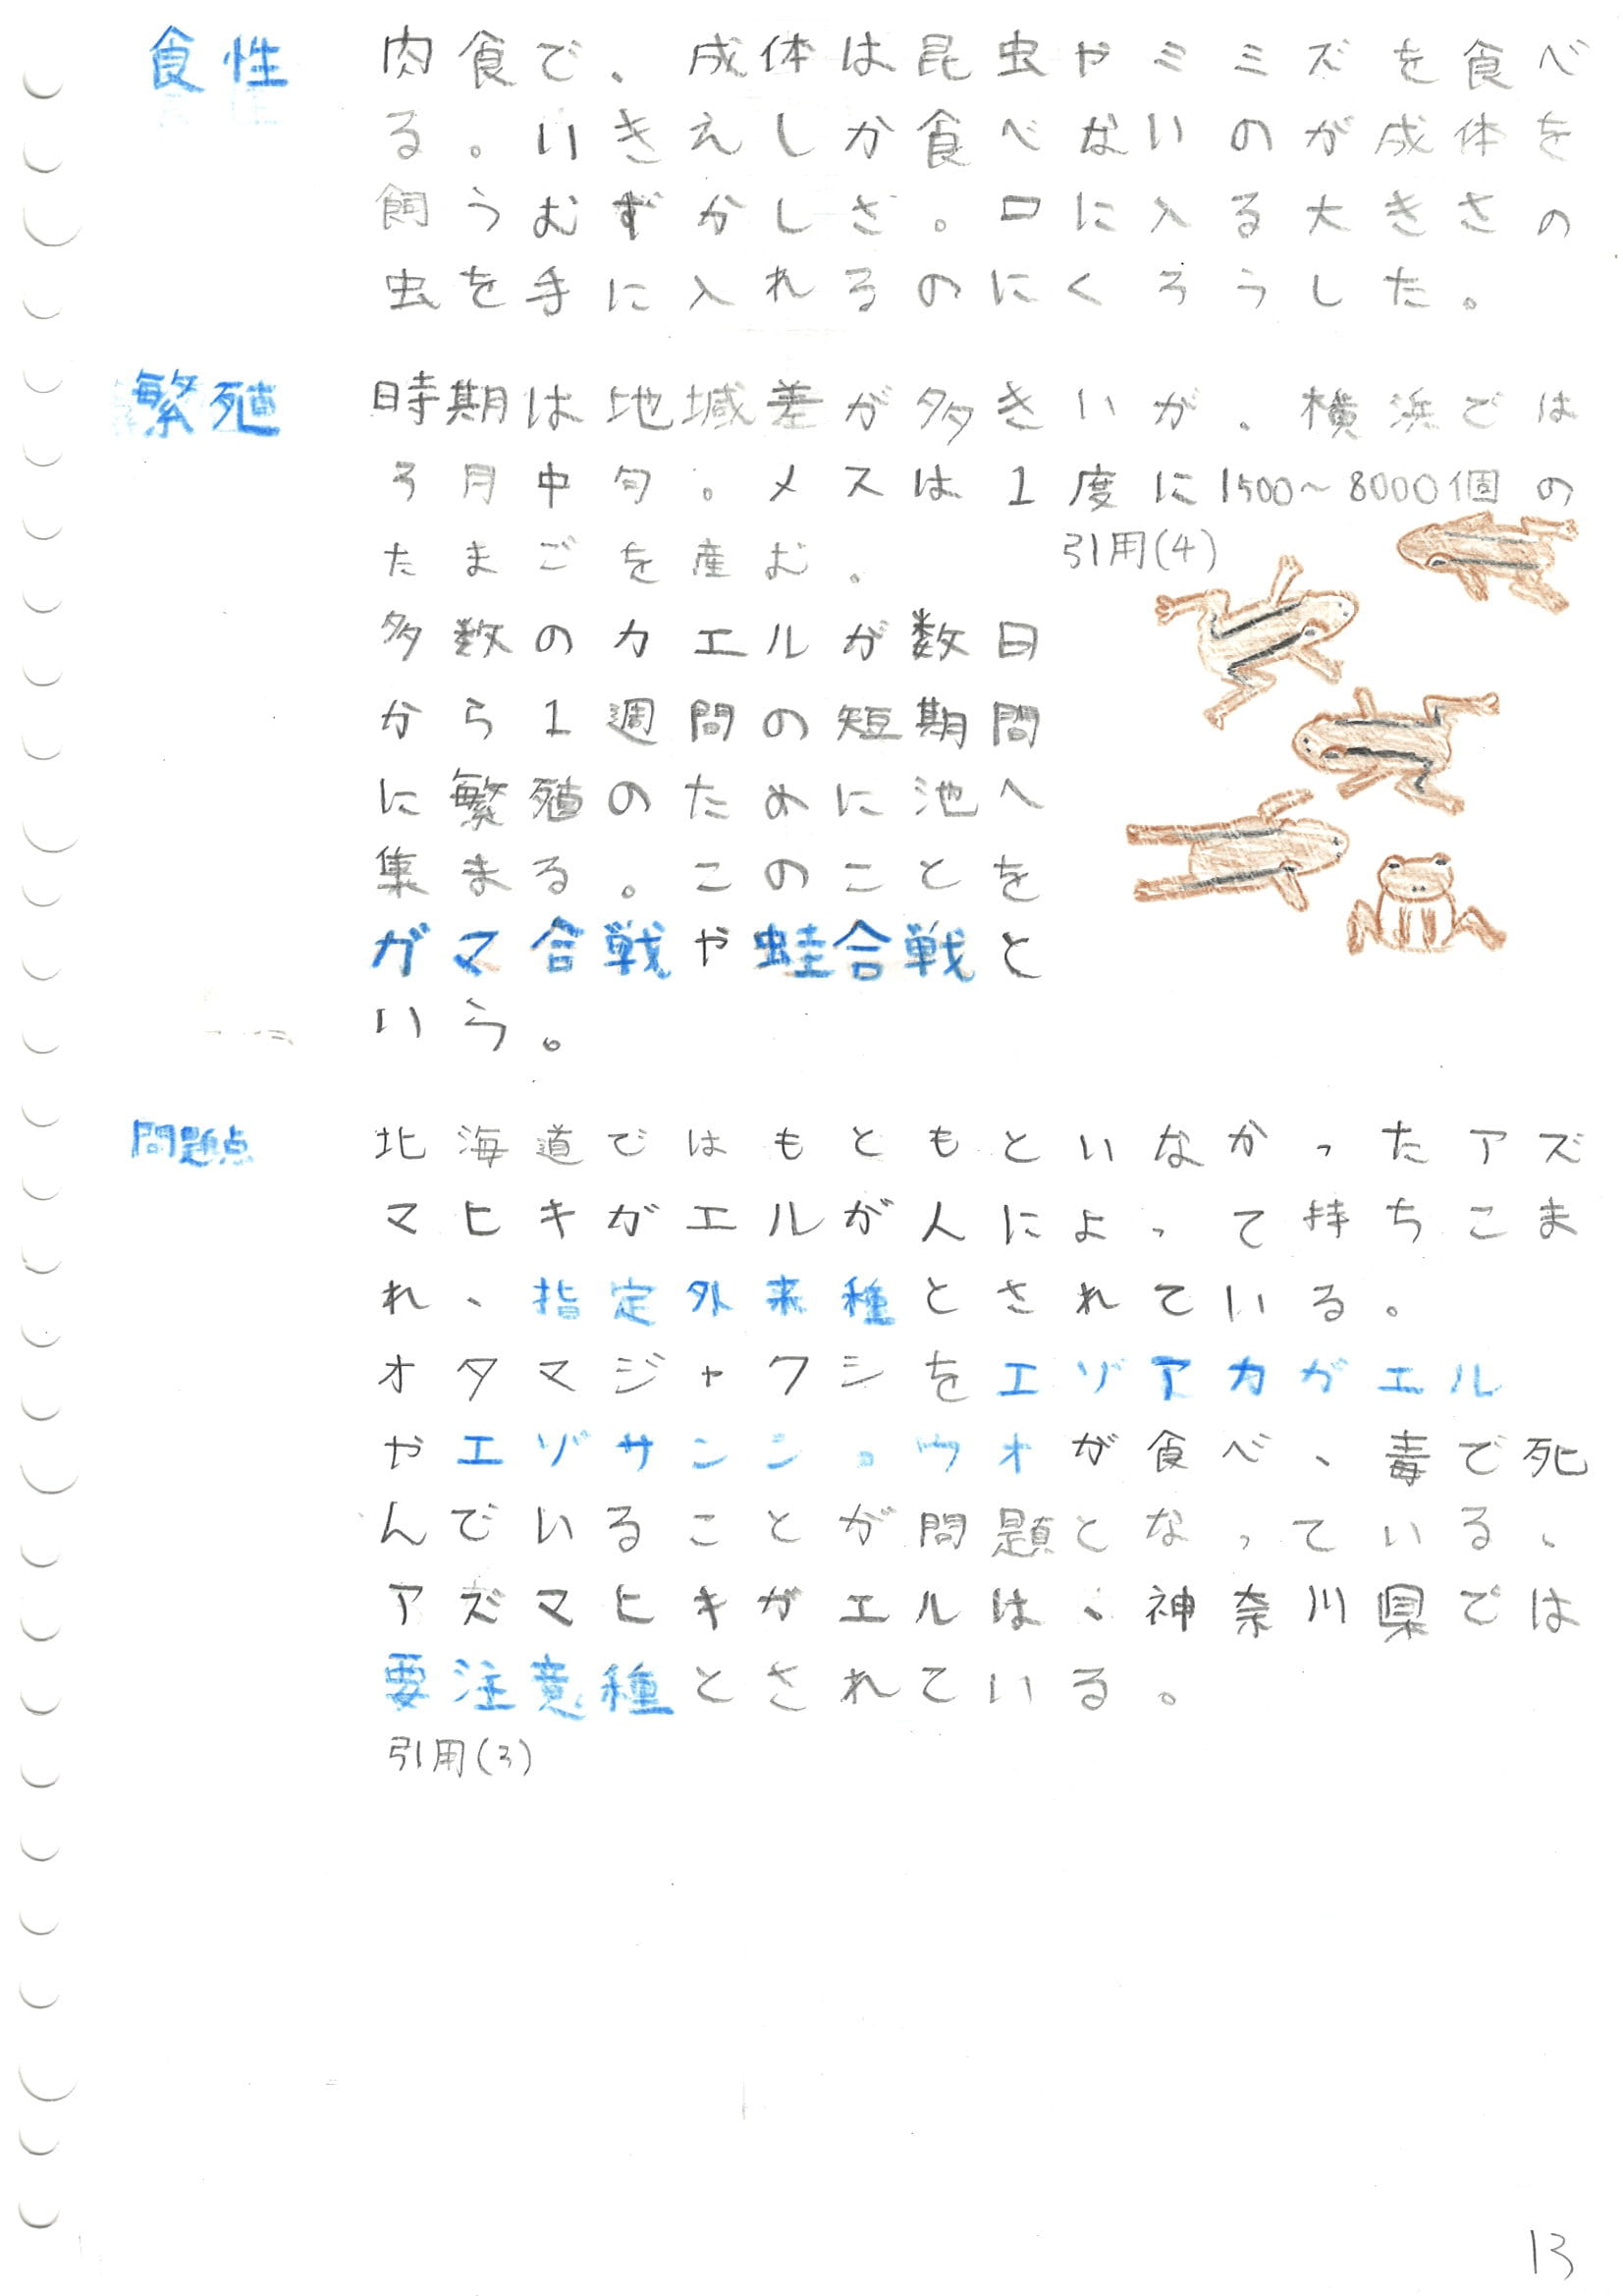 食性 肉食で、成体は昆虫やミミズを食べ
る。いきえしか食べないのが成体を
飼うむずかしさ。口に入る大きさの
虫を手に入れるのにくろうした。
繁殖 時期は地域差が多きいが、横浜では
3月中旬。メスは1度に1500~8000個の
たまごを産む。 引用(4)
多数のカエルが数日
から1週間の短期間
に繁殖のために池へ
集まる。このことを
ガマ合戦や蛙合戦と
いう。
問題点 北海道ではもともといなかったアズ
マヒキガエルが人によって持ちこま
れ、指定外来種とされている。
オタマジャクシをエゾアカガエル
やエゾサンショウウオが食べ、毒で死
んでいることが問題となっている、
アズマヒキガエルは、神奈川県では
要注意種とされている。
引用(3)
13